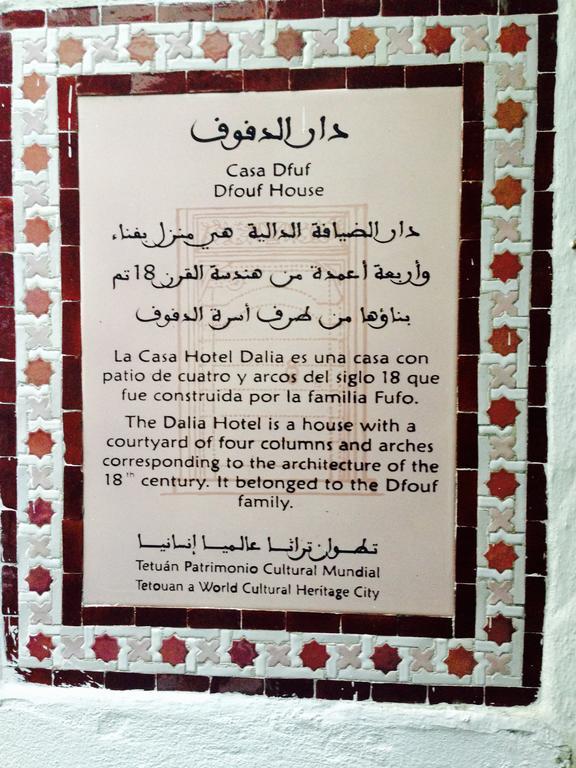 دار الدفوف
Casa Dfuf
Dfouf House
دار الضيافة الدالية هي منزل بفناء
وأربعة أعمدة من هندسة القرن 18 تم
بناؤها من طرف أسرة الدفوف
La Casa Hotel Dalia es una casa con
patio de cuatro y arcos del siglo 18 que
fue construida por la familia Fufo.
The Dalia Hotel is a house with a
courtyard of four columns and arches
corresponding to the architecture of the
18th century. It belonged to the Dfouf
family.
تطوان تراثا عالميا إنسانيا
Tetuán Patrimonio Cultural Mundial
Tetouan a World Cultural Heritage City